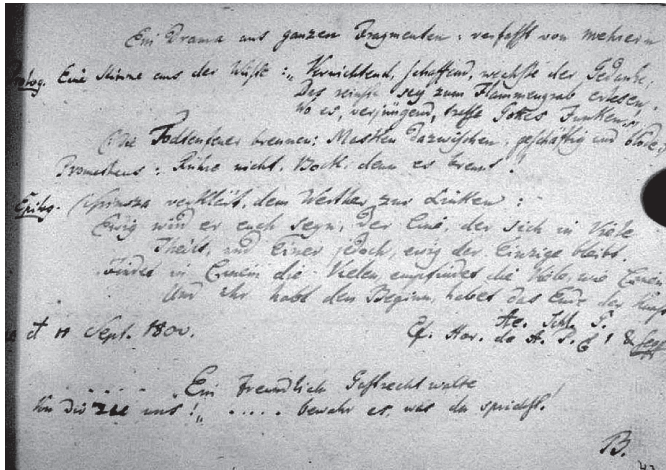 Ein Drama aus ganzen Fragmenten: verfasst von mehrern
Prolog. Eine Stimme aus der Wüste: „Vernichtend, schaffend, wechsle der Gedanke:
Das reinste sey zum Flammengrab erlesen,
Wo es, verjüngend, treffe Gottes Funken."
(Die Todtenfeuer brennen: Masken dazwischen, geschäftig und
Prometheus: Rühre nicht, Bock! denn es brennt."
Epilog. (Spinoza verkleidet, dem Werther zur Linken:
Ewig wird er euch seyn, der Eine, der sich in Viele
Theilt, und Einer jedoch, ewig der Einzige bleibt.
Findet in Einem die Vielen, empfindet die Viele, wie Einen
Und Ihr habt den Beginn, habet das Ende der Kunst
d 11 Sept. 1800.
Ae. Schl. G.
Cf. Hor. de A. P. 1 &
. . . . . . „Ein Freundlich Gastrecht walte
Von dir zu uns!„ . . . . . bewahr es, was du sprichst!
B.